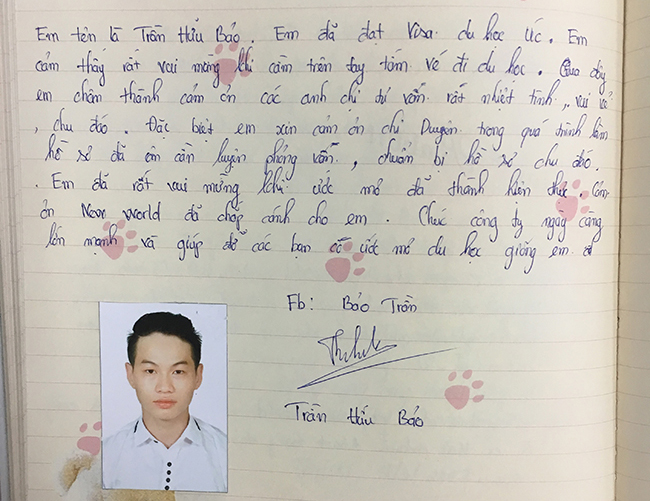 Em tên là Trần Hữu Bảo. Em đã đạt Visa du học Úc. Em
cảm thấy rất vui mừng khi cầm trên tay tấm vé đi du học. Qua đây
em chân thành cảm ơn các anh chị tư vấn rất nhiệt tình, vui vẻ
, chu đáo. Đặc biệt em xin cảm ơn chị Duyên trong quá trình làm
hồ sơ đã ôn cần luyện phỏng vấn, chuẩn bị hồ sơ chu đáo.
. Em đã rất vui mừng khi ước mơ đã thành hiện thực. Cảm
ơn New World đã chắp cánh cho em. Chúc công ty ngày càng
lớn mạnh và giúp đỡ các bạn có ước mơ du học giống em
Fb: Bảo Trần
Trần Hữu Bảo